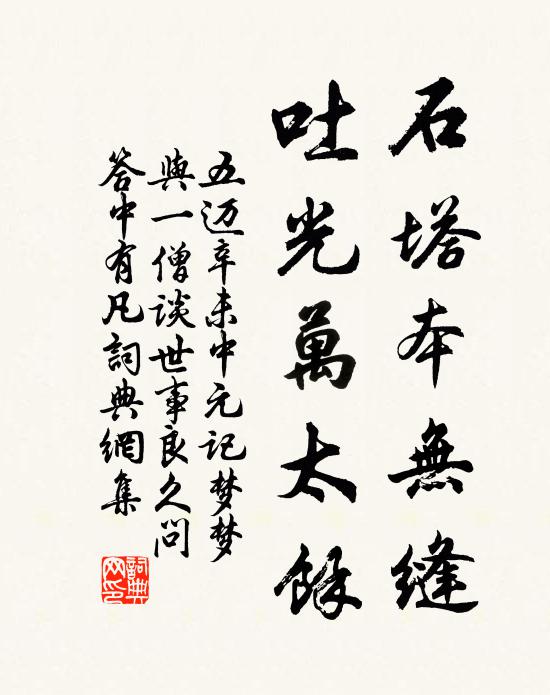 石塔本無縫
吐光萬太餘
五迈辛未中元记梦梦
與一僧谈世事良久问
答中有凡詞典網集
詞典网印